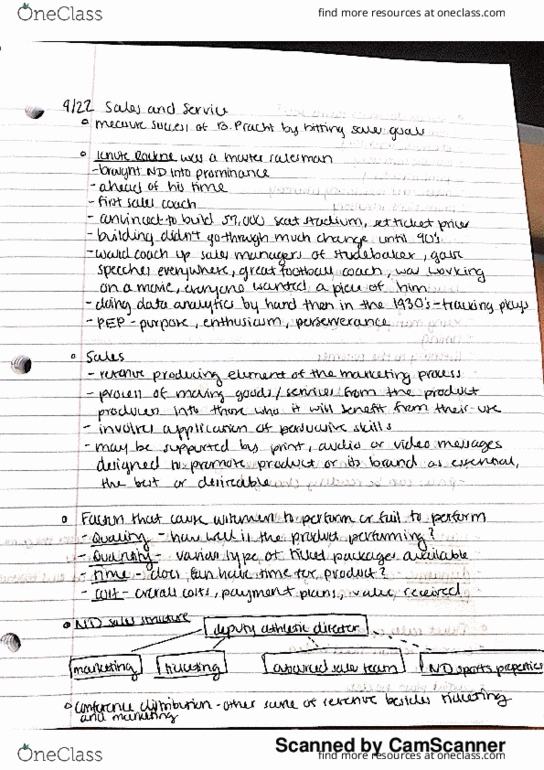 OneClass
find more resources at oneclass.com
9/22 Sales and Service
measure success of B. Pracht by hitting sales goals
Knute Rockne was a master salesman
- brought ND into prominance
- ahead of his time
- first sales coach
- convinced to build 57,000 seat stadium, set ticket prices
- building didn't go through much change until 90's
- would coach up sales managers of Studebaker, gave
speeches everywhere, great football coach, was working
on a movie, everyone wanted a piece of him
- doing data analytics by hand then in the 1930's - tracking plays
- PEP - purpose, enthusiasm, perserverance
Sales
- revenue producing element of the marketing process
- process of moving goods/services from the product
producer into those who it will benefit from their use
- involves application of persuasive skills
- may be supported by print, audio or video messages
designed to promote product or its brand as essential,
the best or desireable
Factors that cause customers to perform or fail to perform
- Quality - how well is the product performing?
- Quantity - various type of ticket packages available
- time - does fan have time for product?
- cost - overall costs, payment plans, value received
ND sales structure
deputy athletic director
marketing
ticketing
advanced sales team
ND sports properties
Conference distribution - other source of revenue besides ticketing
and marketing
Scanned by CamScanner
OneClass
find more resources at oneclass.com